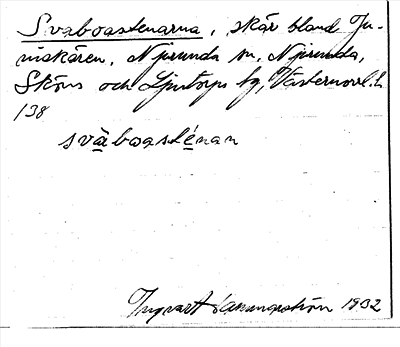 Svaboastenarna, skär bland Ju-
niskären, Njurunda sn, Njurunda,
Sköns och Ljustorps tg, Västernorrl. l.
138
svàboasténan
Ingvart 1932